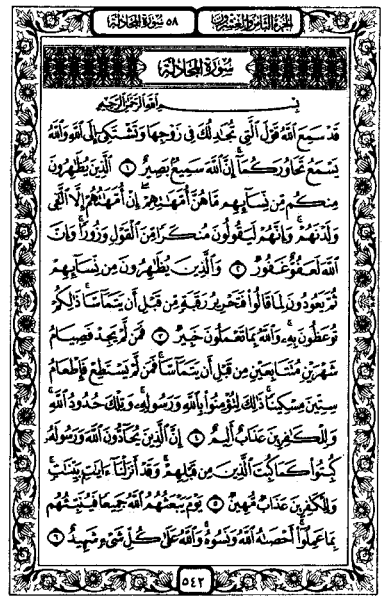 الجزء الثامن والعشرون
٥٨ سورة المجادلة
سورة المجادلة
بسم الله الرحمن الرحيم
قَدْ سَمِعَ اللَّهُ قَوْلَ الَّتِي تُجَادِلُكَ فِي زَوْجِهَا وَتَشْتَكِي إِلَى اللَّهِ وَاللَّهُ
يَسْمَعُ تَحَاوُرَكُمَا إِنَّ اللَّهَ سَمِيعٌ بَصِيرٌ ١ الَّذِينَ يُظَاهِرُونَ
مِنكُم مِّن نِّسَائِهِم مَّا هُنَّ أُمَّهَاتِهِمْ إِنْ أُمَّهَاتُهُمْ إِلَّا اللَّائِي
وَلَدْنَهُمْ وَإِنَّهُمْ لَيَقُولُونَ مُنكَرًا مِّنَ الْقَوْلِ وَزُورًا وَإِنَّ
اللَّهَ لَعَفُوٌّ غَفُورٌ ٢ وَالَّذِينَ يُظَاهِرُونَ مِن نِّسَائِهِمْ
ثُمَّ يَعُودُونَ لِمَا قَالُوا فَتَحْرِيرُ رَقَبَةٍ مِّن قَبْلِ أَن يَتَمَاسَّا ذَٰلِكُمْ
تُوعَظُونَ بِهِ وَاللَّهُ بِمَا تَعْمَلُونَ خَبِيرٌ ٣ فَمَن لَّمْ يَجِدْ فَصِيَامُ
شَهْرَيْنِ مُتَتَابِعَيْنِ مِن قَبْلِ أَن يَتَمَاسَّا فَمَن لَّمْ يَسْتَطِعْ فَإِطْعَامُ
سِتِّينَ مِسْكِينًا ذَٰلِكَ لِتُؤْمِنُوا بِاللَّهِ وَرَسُولِهِ وَتِلْكَ حُدُودُ اللَّهِ
وَلِلْكَافِرِينَ عَذَابٌ أَلِيمٌ ٤ إِنَّ الَّذِينَ يُحَادُّونَ اللَّهَ وَرَسُولَهُ
كُبِتُوا كَمَا كُبِتَ الَّذِينَ مِن قَبْلِهِمْ وَقَدْ أَنزَلْنَا آيَاتٍ بَيِّنَاتٍ
وَلِلْكَافِرِينَ عَذَابٌ مُّهِينٌ ٥ يَوْمَ يَبْعَثُهُمُ اللَّهُ جَمِيعًا فَيُنَبِّئُهُم
بِمَا عَمِلُوا أَحْصَاهُ اللَّهُ وَنَسُوهُ وَاللَّهُ عَلَىٰ كُلِّ شَيْءٍ شَهِيدٌ ٦
٥٤٢